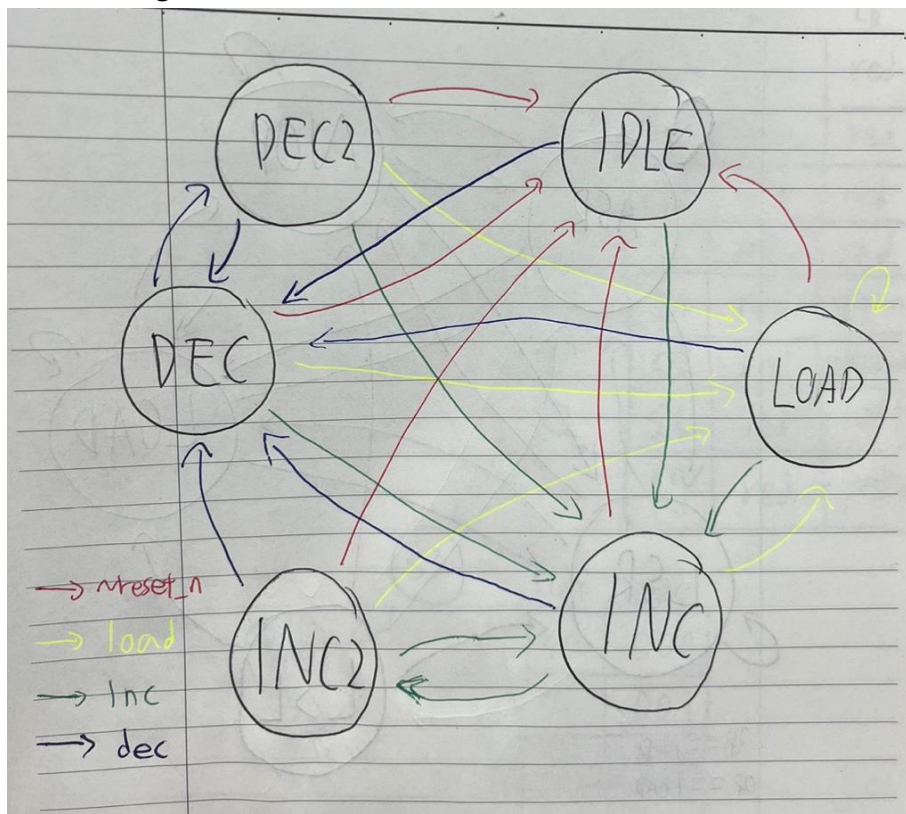 DEC2
IDLE
DEC
LOAD
INC2
INC
→ ~reset_n
→ load
→ Inc
→ dec